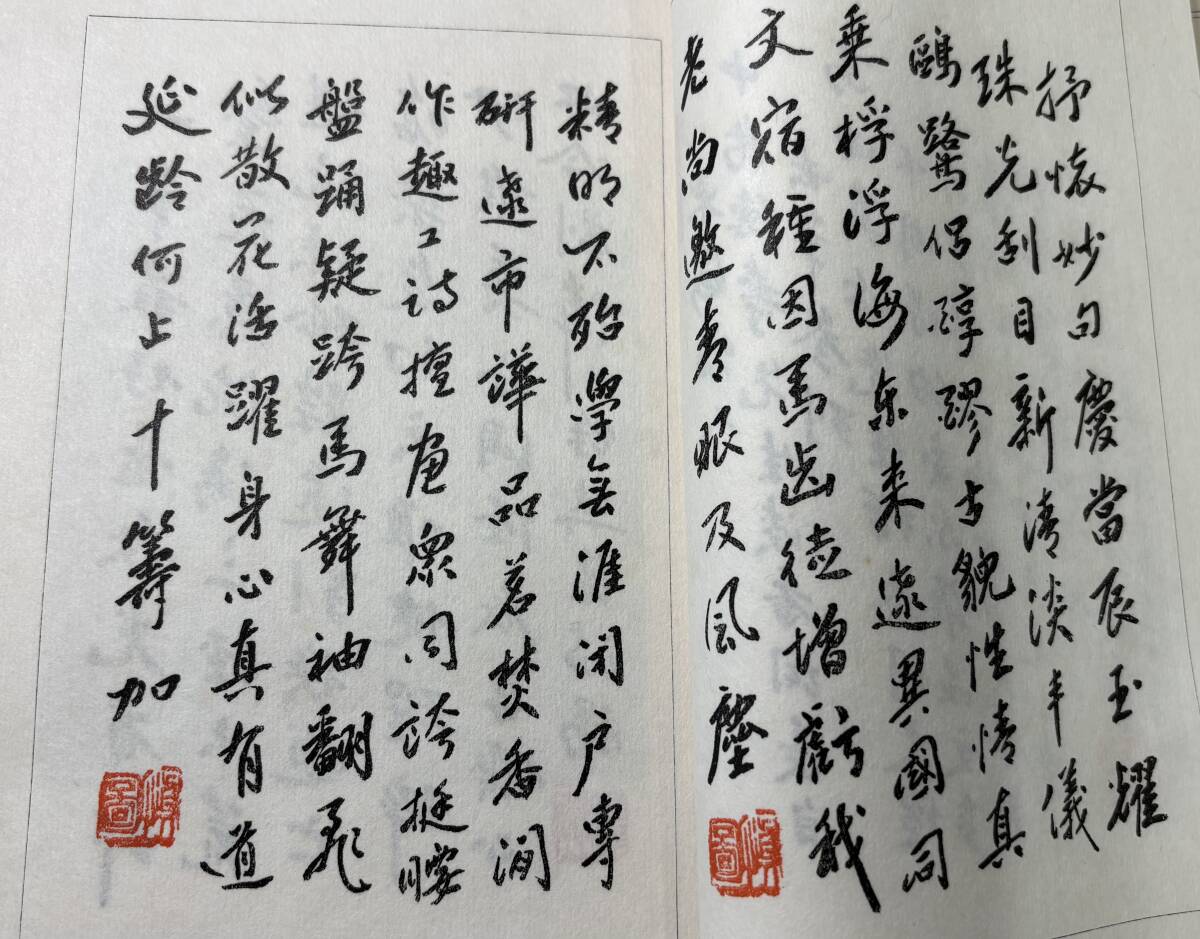 抒懷妙句慶當辰玉耀
珠光刮目新清淡丰儀
鷗鷺侶醇醪古貌性情真
乘桴浮海東來遠異國同
文宿種因馬齒徒增虧我
老尚邀青眼及風塵
精明不殆學無涯閉户專
研遠市譁品茗焚香閒
作趣工詩擅畫眾同誇挺腰
盤踊疑跨馬舞袖翻飛
似散花活躍身心真有道
延齡何止十籌加